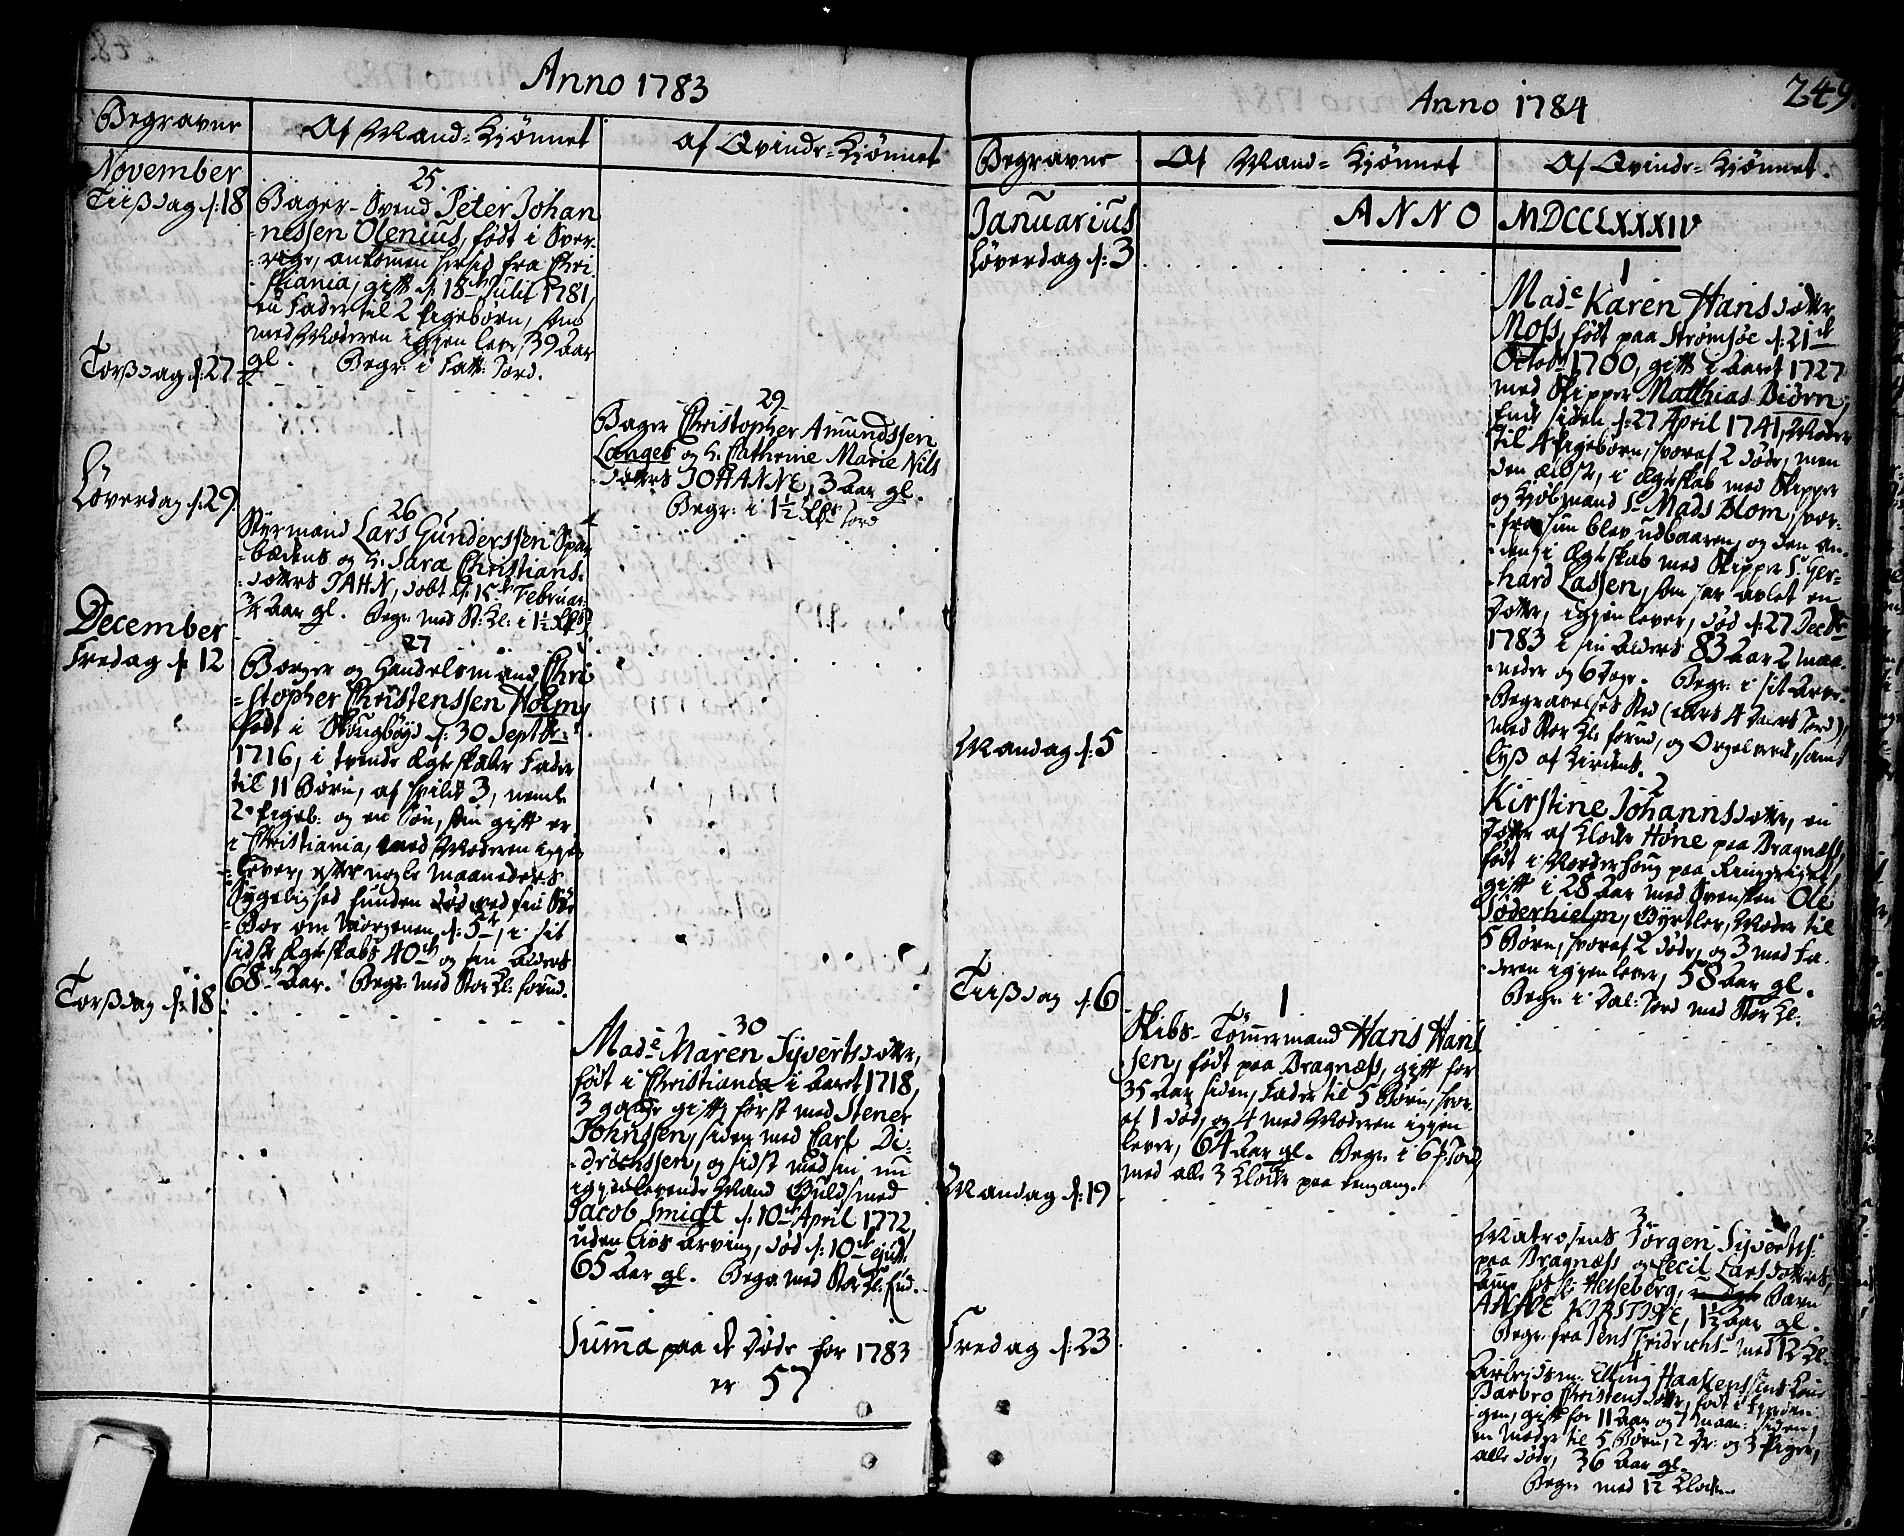 Anno 1783
Begravne
Af Mand-Kiønnet
Af Qvinde-Kiønnet
November
Tiisdag d: 18
25.
Bager-Svend Peter Johan
-nessen Olenius, født i Sver-
-rige, ankomen hersed fra Chri-
stiania, gift d: 18de Julii 1781,
en Fader til 2 Pigebørn, som
med Moderen igien lever, 39 Aar
gl. Begr: i Fatt: Jord.
Torsdag d: 27
29
Bager Christopher Amundssen
Langes og H. Cathrine Marie Nils
-dotters JOHANNE, 3 Aar gl.
Begr: i 1½ Jord
Løverdag d: 29.
26
Styrmand Lars Gunderssen
og H. Sara Christians-
-dotters JAHN, døbt d: 15de Februar:
¾ Aar gl. Begr: med St: Kl: i 1½
December
Fredag d: 12
27
Borger og Handelsmand Chri
-stopher Christenssen Holm,
født i Skougbøyd d: 30 Septbr:
1716, i tvende Ægteskaber Fader
til 11 Børn, af hvilke 3, neml:
2 Pigeb: og en Søn, som gift er
i Christiania, med Moderen igien
lever, efter nogle Maaneders
Sygelighed funden død ved sin
om Morgenen d: 5te, i sit
sidste Ægteskabs 40de og sin Alders
68de Aar. Begr: med Stor Kl: forud.
Torsdag d: 18
30
Made Maren Syvertsdotter,
født i Christiania i Aaret 1718,
3 gange gift, først med Stener
Johnssen, siden med Carl Di-
-drichssen, og sidst med sin nu
igienlevende Mand Guldsmed
Jacob Smidt d: 10de April 1772,
uden Livs Arving, død d: 10de ejusd.
65 Aar gl. Begr: med Stor Kl: fud.
Summa paa de Døde for 1783
er 57
Anno 1784
249.
Begravne
Af Mand-Kiønnet
Af Qvinde-Kiønnet.
ANNO MDCCLXXXIV
Januarius
Løverdag d: 3
1
Made Karen Hansdotter
Moss, født paa Strømsøe d: 21de
Octob: 1700, gift i Aaret 1727
med Skipper Matthias Biørn,
Enke siden d: 27 April 1741, Moder
til 4 Pigebørn, hvoraf 2 døde, men
den ældste, i Ægteskab med Skipper
og Kiøbmand Sr Mads Blom, hvor-
-fra hun blev udbaaren, og den an-
-den i Ægteskab med Skipper Sr Ger-
-hard Lassen, som har avlet en
Dotter, igien lever, død d: 27 Decbr
1783 i sin Alders 83 Aar 2 Maa-
-neder og 6 Dage. Begr: i sit Arve-
-Begravelses Sted (ellers 4 Jord)
med Stor Kl: forud, og Orgelverk, samt
Lys af Kirken.
Mandag d: 5
2
Kirstine Johannsdotter, en
Dotter af Klocker Høne paa Bragnæss,
født i Norderhoug paa Ringerige,
gift i 28 Aar med Svensken Ole
Søderhielm, Gyrtler, Moder til
5 Børn, hvoraf 2 døde, og 3 med Fa-
-deren igien lever, 58 Aar gl.
Begr: i Dal: Jord med Stor Kl:
Tiisdag d: 6
1
Skibs-Tømmermand Hans Hans
sen, født paa Bragnæss, gift for
35 Aar siden, Fader til 5 Børn, hvor-
af 1 død, og 4 med Moderen igien
lever, 64 Aar gl. Begr: i 6 Jord,
med alle 3 Klocker paa eengang.
Mandag d: 19
3
Matrosens Jørgen Syvertss:
paa Bragnæss og Cecil Larsdotters,
Helseberg, Barn
ANNE KIRSTINE, 1½ Aar gl.
Begr: fra Jens Fridrichs- med 12 Kl:
Fredag d: 23
4
Arbeidsm: Elling Haagenssens Kone
Barbro Christensdotter, født i
gen, gift for 11 Aar og 7 Maan: siden,
en Moder til 5 Børn, 2 Dr: og 3 Piger,
alle døde, 36 Aar gl.
Begr: med 12 Klocken